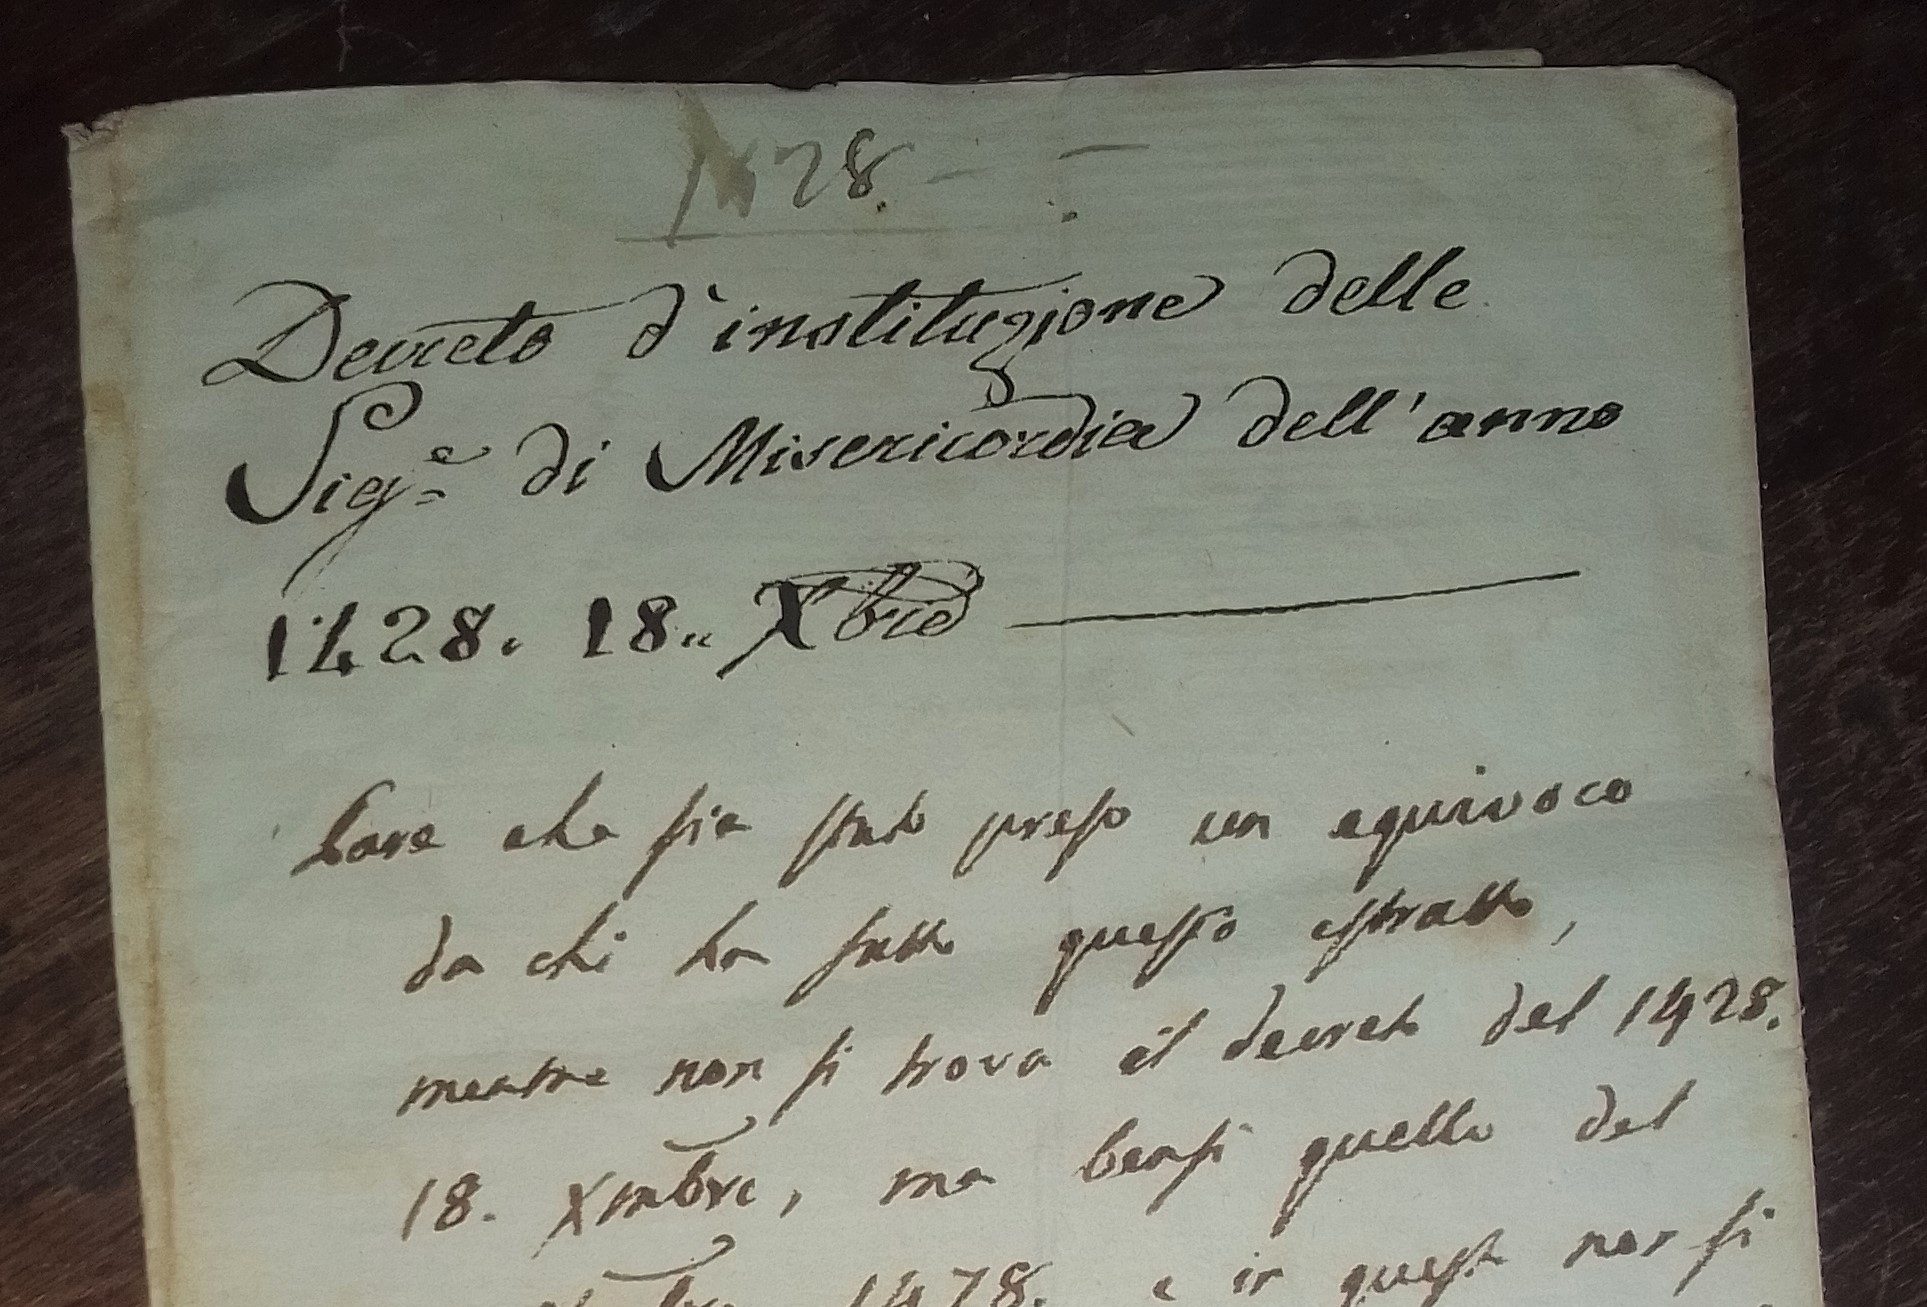 1428. -
Decreto d'instituzione delle
Sig.e di Misericordia dell'anno
1428. 18. Xbre
Pare che sia stato preso un equivoco
da chi ha fatto questo estratto,
mentre non si trova il decreto del 1428.
18. Xmbre, ma bensi quello del
1478. e in questo non si